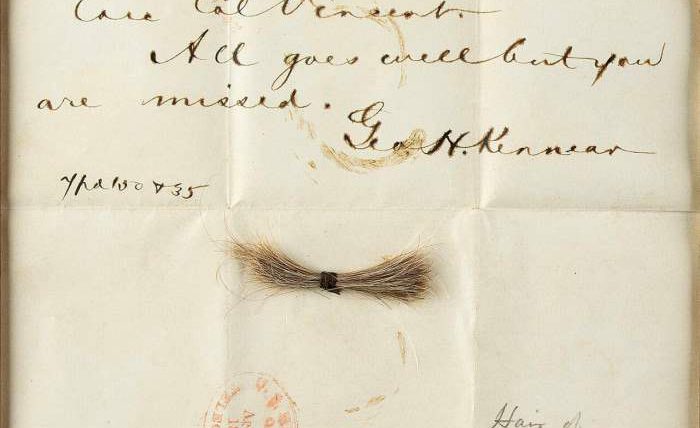 Care Col Vincent.
All goes well but you
are missed.
Geo. H. Kennear
35
U.S.
Hair of